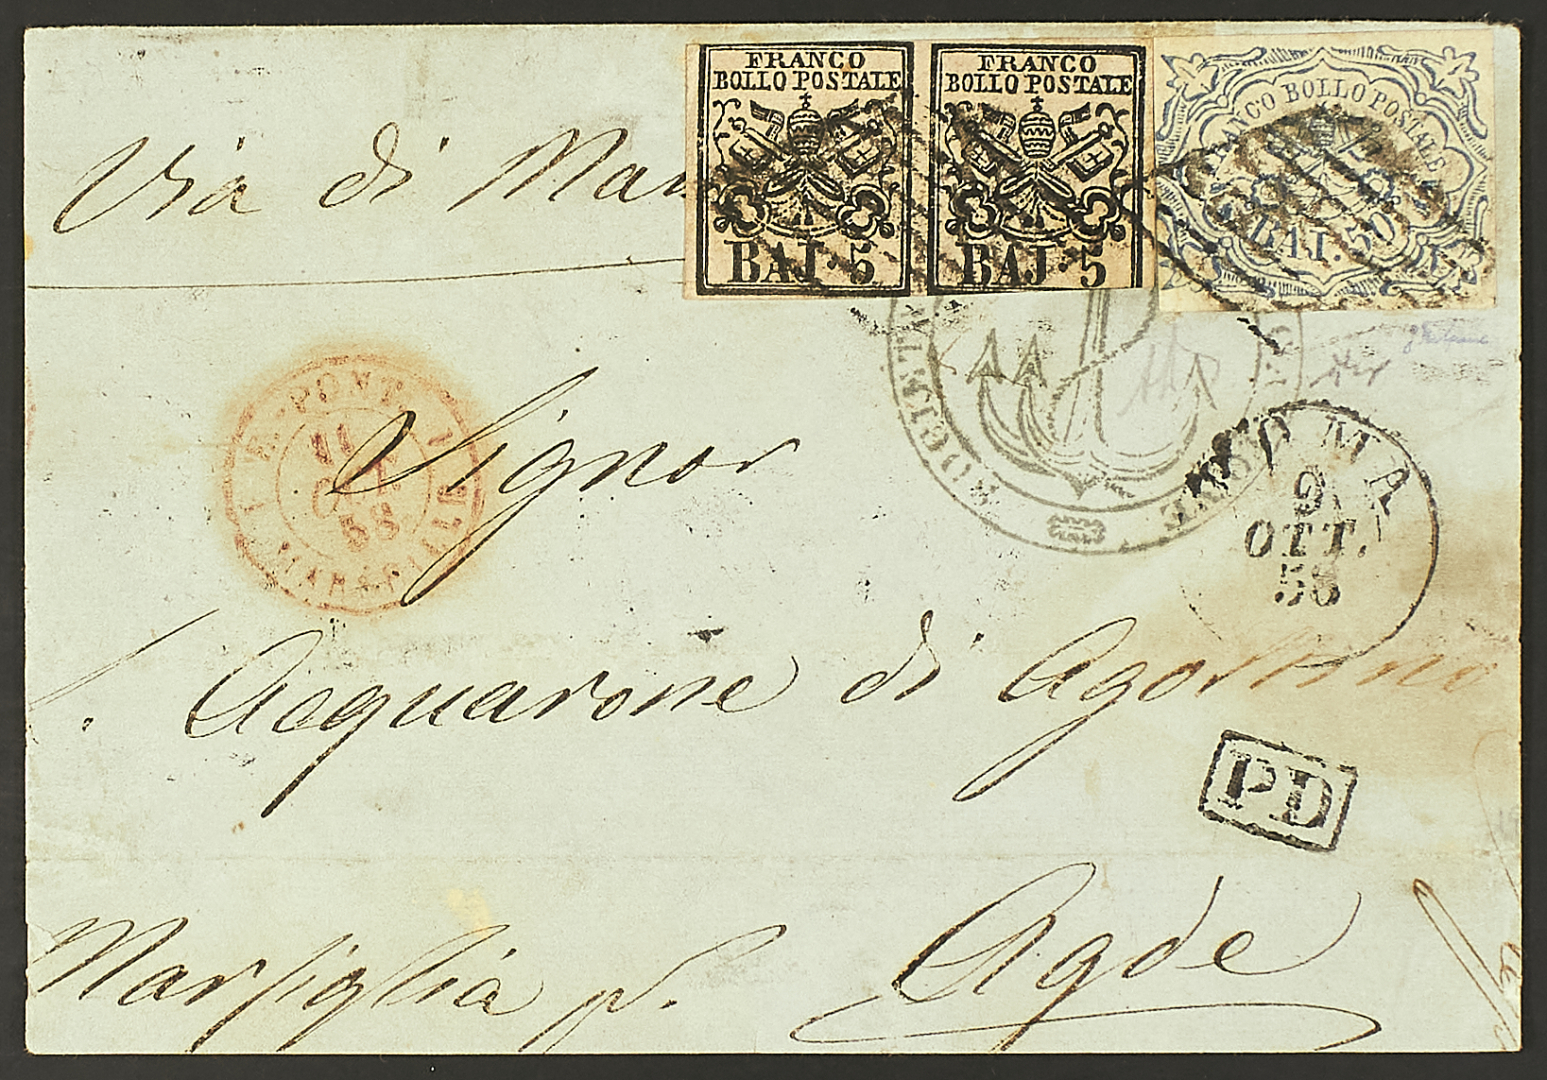 FRANCO
BOLLO POSTALE
BAJ. 5
FRANCO
BOLLO POSTALE
BAJ. 5
FRANCO BOLLO POSTALE
BAJ. 50
Via di Mar
E. PONT.
11
OCT
58
MARSEILLE
Signor
ROMA
9
OTT.
58
Acquarone di Agostino
PD
Marsiglia p. Agde